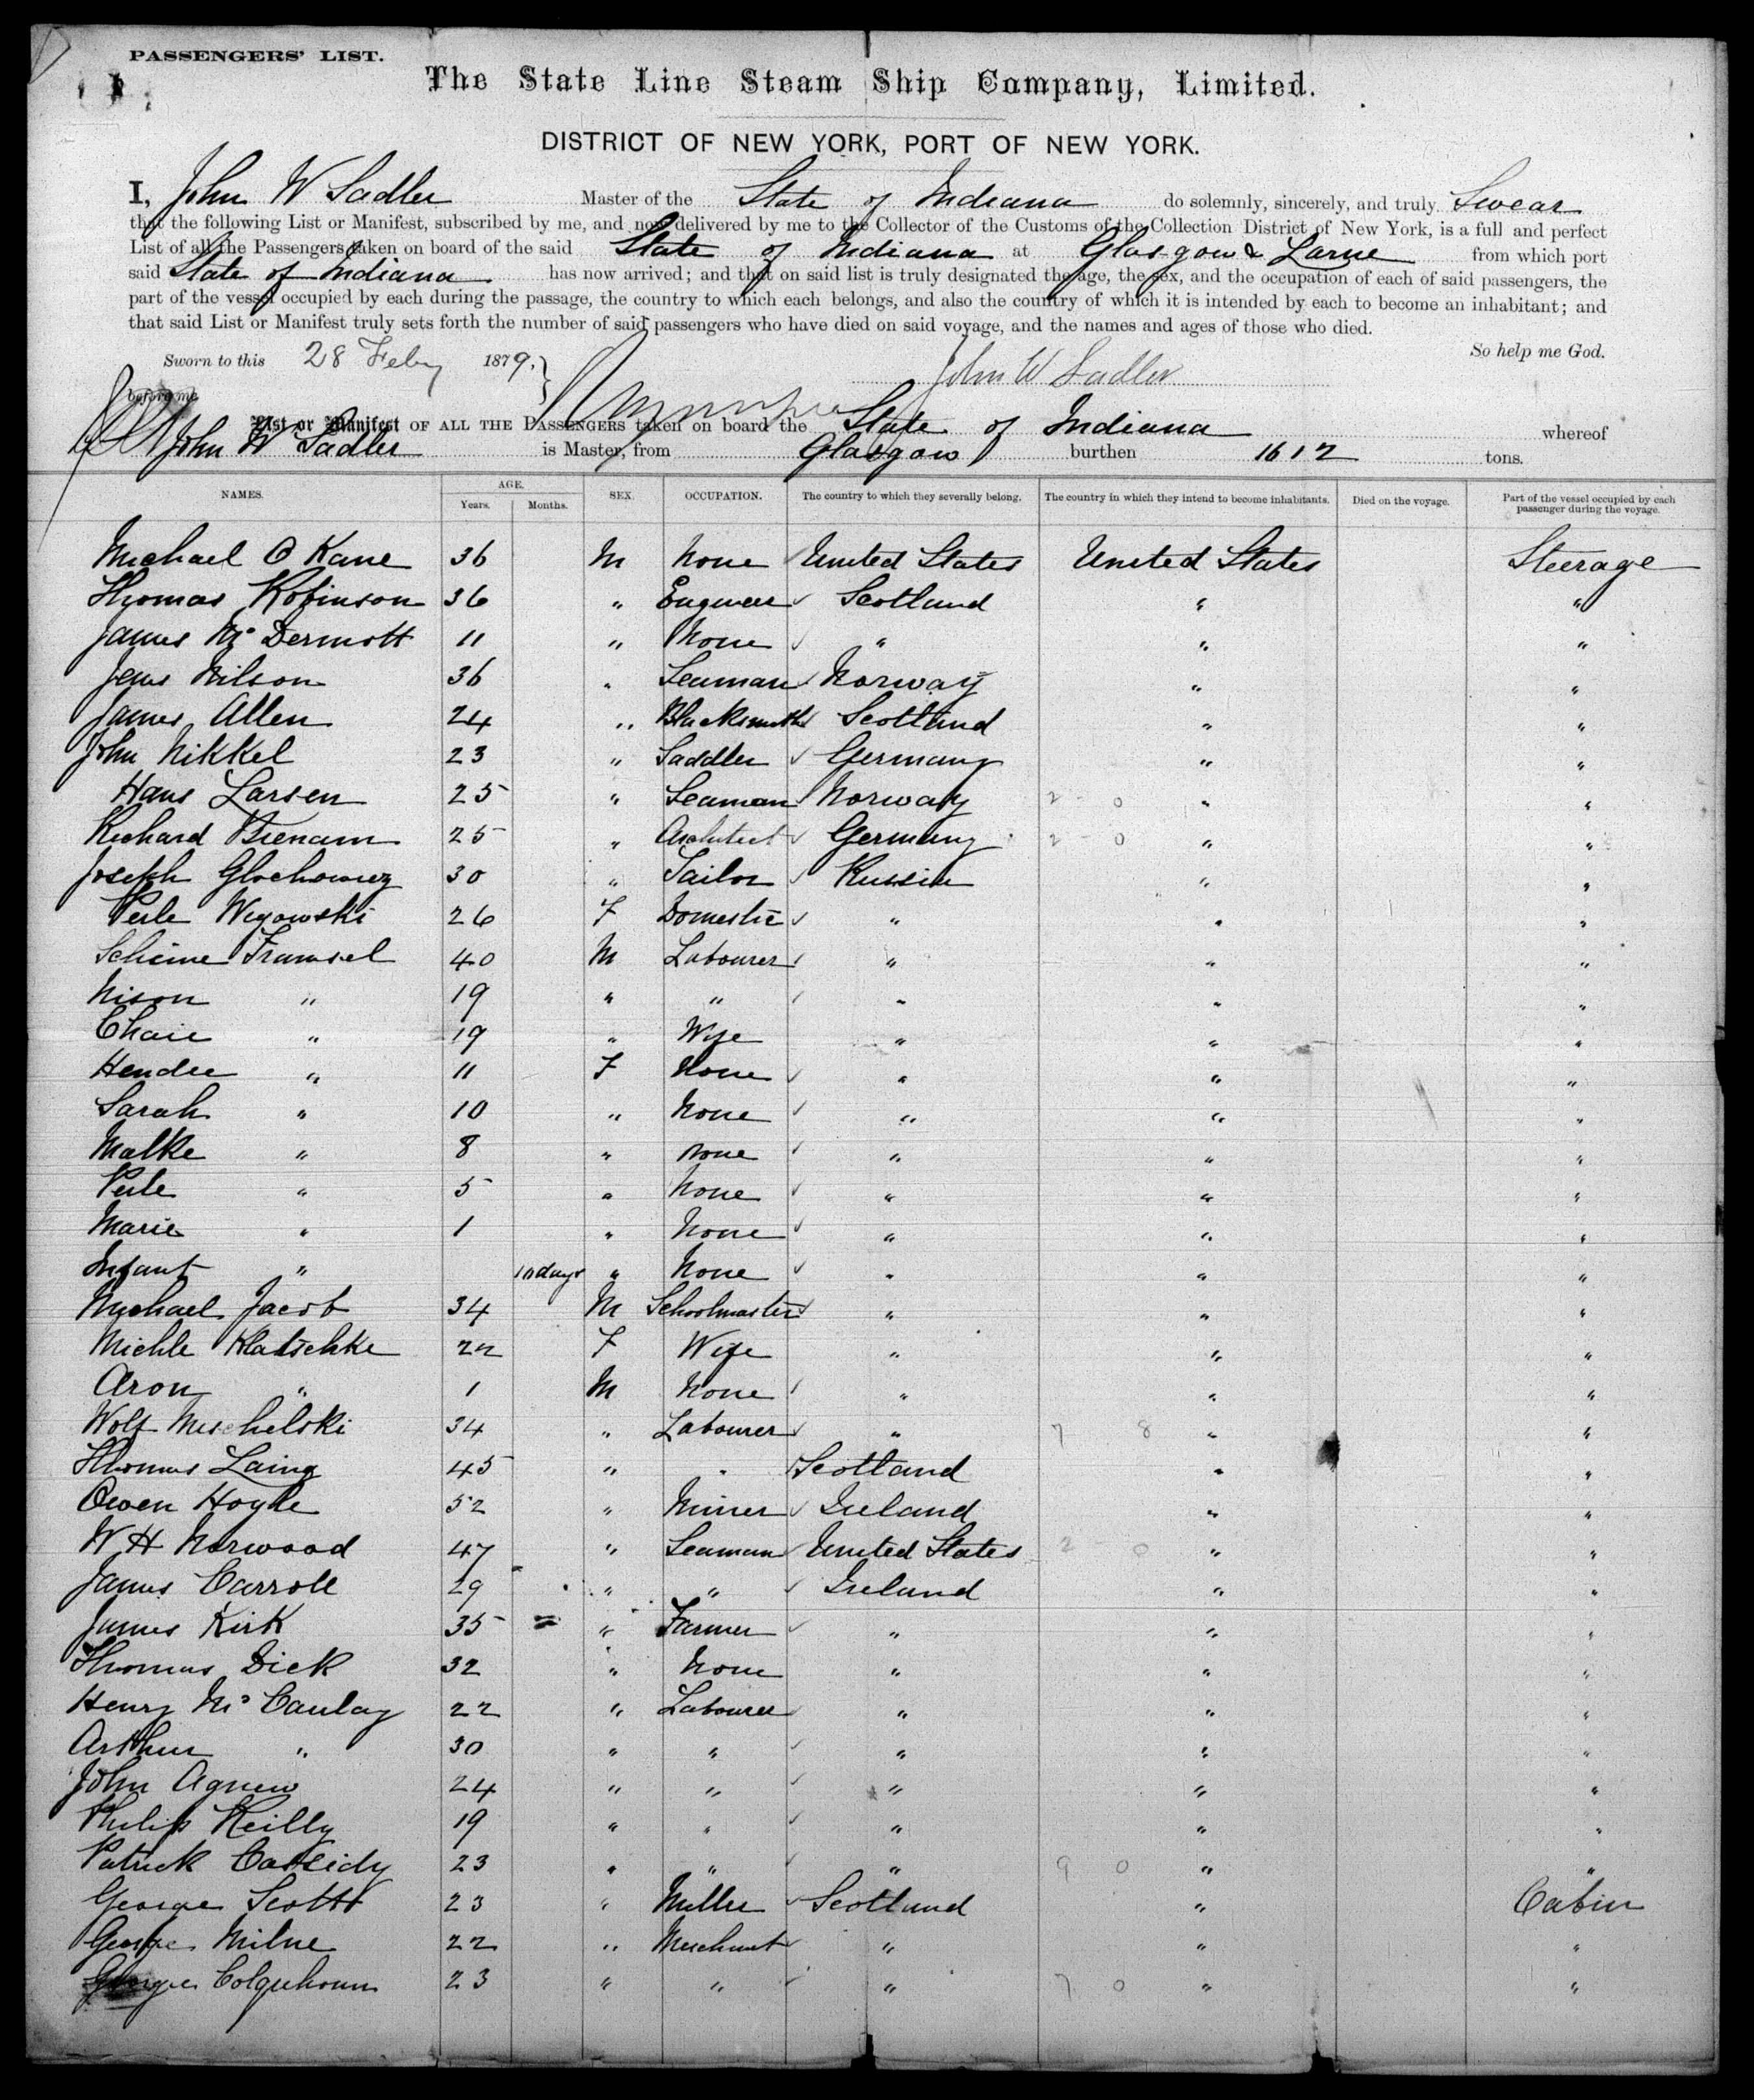 PASSENGERS' LIST.
The State Line Steam Ship Company, Limited.
DISTRICT OF NEW YORK, PORT OF NEW YORK.
I, John W Sadler Master of the State of Indiana do solemnly, sincerely, and truly Swear
that the following List or Manifest, subscribed by me, and now delivered by me to the Collector of the Customs of the Collection District of New York, is a full and perfect
List of all the Passengers taken on board of the said State of Indiana at Glasgow & Larne from which port
said State of Indiana has now arrived; and that on said list is truly designated the age, the sex, and the occupation of each of said passengers, the
part of the vessel occupied by each during the passage, the country to which each belongs, and also the country of which it is intended by each to become an inhabitant; and
that said List or Manifest truly sets forth the number of said passengers who have died on said voyage, and the names and ages of those who died.
So help me God.
Sworn to this 28 Feby 1879.
John W Sadler
before me
List or Manifest OF ALL THE PASSENGERS taken on board the State of Indiana whereof
John W Sadler is Master, from Glasgow burthen 1612 tons.
NAMES. AGE. Years. Months. SEX. OCCUPATION. The country to which they severally belong. The country in which they intend to become inhabitants. Died on the voyage. Part of the vessel occupied by each passenger during the voyage.
Michael O Kane 36 M None United States United States Steerage
Thomas Robinson 36 " Engineer Scotland " "
James McDermott 11 " None " " "
Jens Nilson 36 " Seaman Norway " "
James Allen 24 " Blacksmith Scotland " "
John Nikkel 23 " Saddler Germany " "
Hans Larsen 25 " Seaman Norway 2 - 0 " "
Richard Bienam 25 " Architect Germany 2 - 0 " "
Joseph Glochowicz 30 " Tailor Russia " "
Perle Wigowski 26 F Domestic " " "
Scheine Framsel 40 M Labourer " " "
Nison " 19 " " " " "
Chaie " 19 " Wife " " "
Hendee " 11 F None " " "
Sarah " 10 " None " " "
Malke " 8 " None " " "
Perle " 5 " None " " "
Marie " 1 " None " " "
Infant " 10 days " None " " "
Michael Jacob 34 M Schoolmaster " " "
Michle Klatschke 22 F Wife " " "
Aron " 1 M None " " "
Wolf Mischelski 34 " Labourer " 7 8 " "
Thomas Laing 45 " " Scotland " "
Owen Hoyle 52 " Miner Ireland " "
W H Norwood 47 " Seaman United States 2 - 0 " "
James Carroll 29 " " Ireland " "
James Kirk 35 " Farmer " " "
Thomas Dick 32 " None " " "
Henry McCaulay 22 " Labourer " " "
Arthur " 30 " " " " "
John Agnew 24 " " " " "
Philip Reilly 19 " " " " "
Patrick Cassidy 23 " " " 9 0 " "
George Scott 23 " Miller Scotland " Cabin
George Milne 22 " Merchant " " "
George Colquhoun 23 " " " 7 0 " "